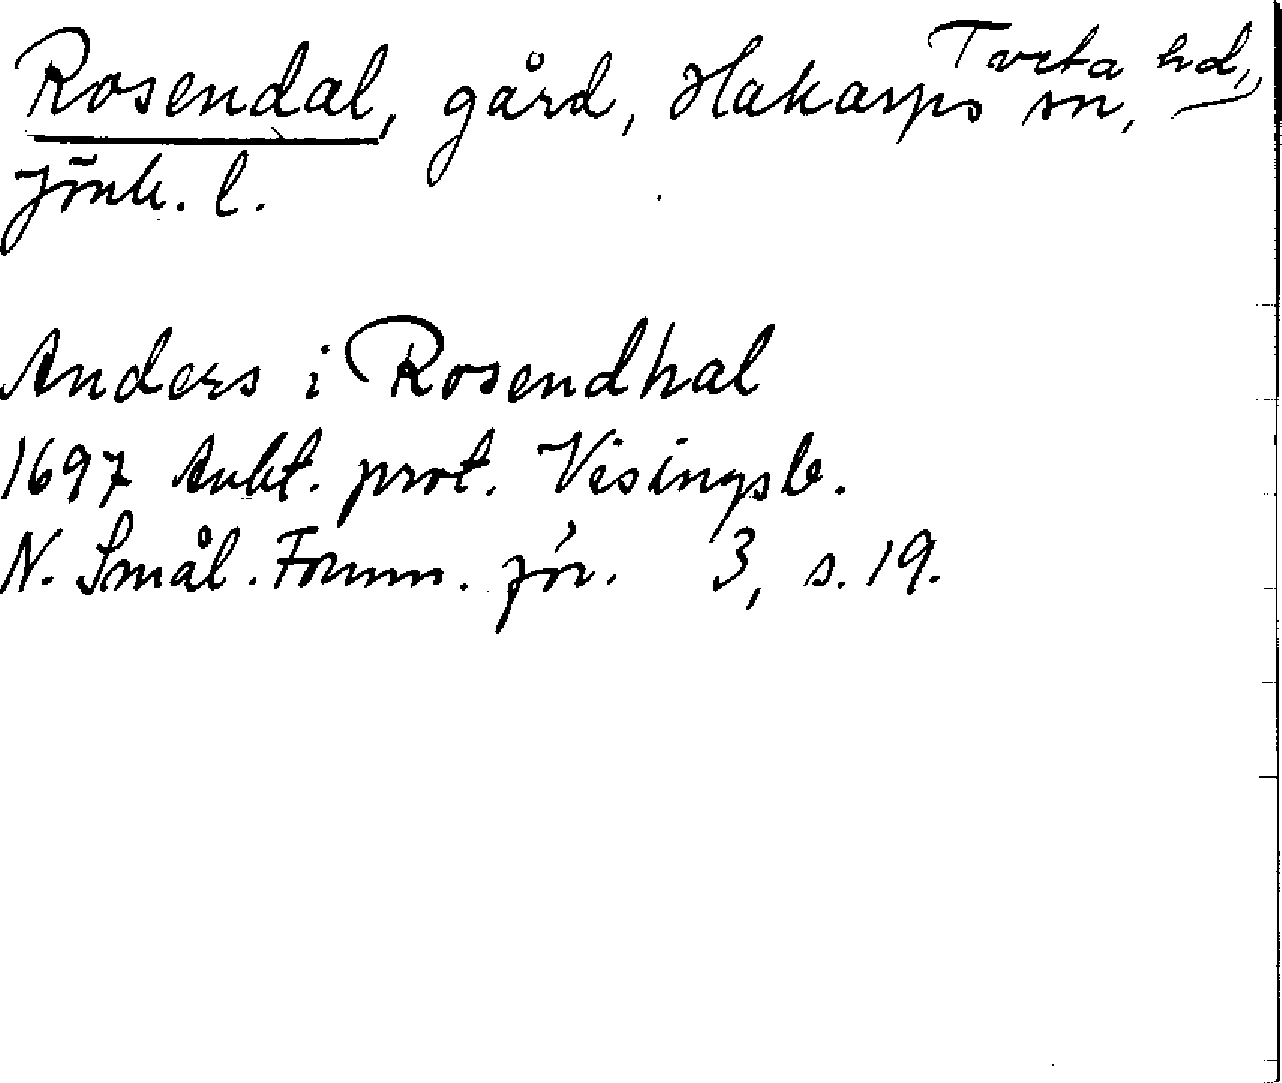 Rosendal, gård, Hakarps sn, Tveta hd,
Jönk. l.
Anders i Rosendhal
1697 Aukt. prot. Visingsb.
N. Smål. Fornm. för. 3, s. 19.